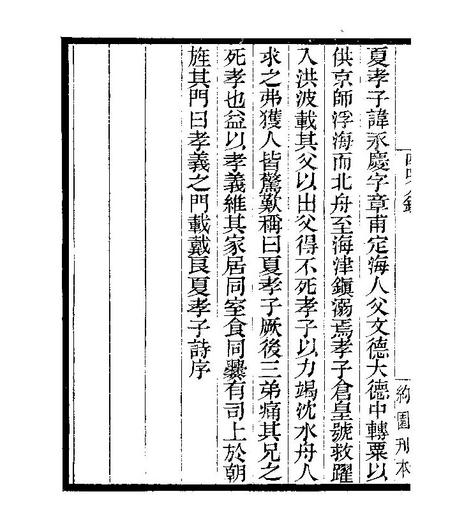 夏孝子諱永慶字章甫定海人父文德大德中轉粟以
供京師浮海而北舟至海津鎮溺焉孝子倉皇號救躍
入洪波載其父以出父得不死孝子以力竭沈水舟人
求之弗獲人皆驚歎稱曰夏孝子厥後三弟痛其兄之
死孝也益以孝義維其家居同室食同爨有司上於朝
旌其門曰孝義之門載戴良夏孝子詩序
約園刊本